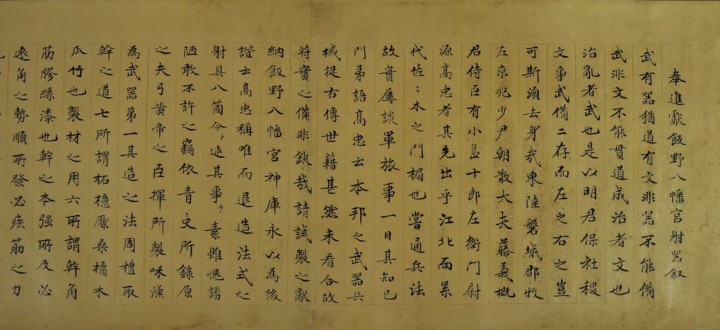 奉進獻飯野八幡宮射器叙
武有器猶道有文非器不能備
武非文不能貫道成治者文也
治亂者武也是以明君保社稷
文事武備二存而左之右之豈
可斯須去身哉東陸磐城郡牧
左京兆少尹朝散大夫藤義概
君侍臣有小島十郎左衛門尉
源高忠者其先出乎江北而累
代佐々木之門楣也嘗通兵法
故實屢談軍旅事一日具知己
門弟語高忠云本邦之武器兵
械從古傳世籍甚然未看合故
實之備非缺哉請試製之獻
納飯野八幡宮神庫永以為後
證士高忠稱唯而退造法式之
射具八箇今述其事素雖愧謭
陋敢不許之竊依青史所錄原
之夫弓黄帝之臣揮所製味漢
為武器第一具造之法周禮取
幹之道七所謂柘檍檿桑橘木
瓜竹也製材之用六所謂幹角
筋膠絲漆也幹之本强所及必
遠角之勢順所發必疾筋之力